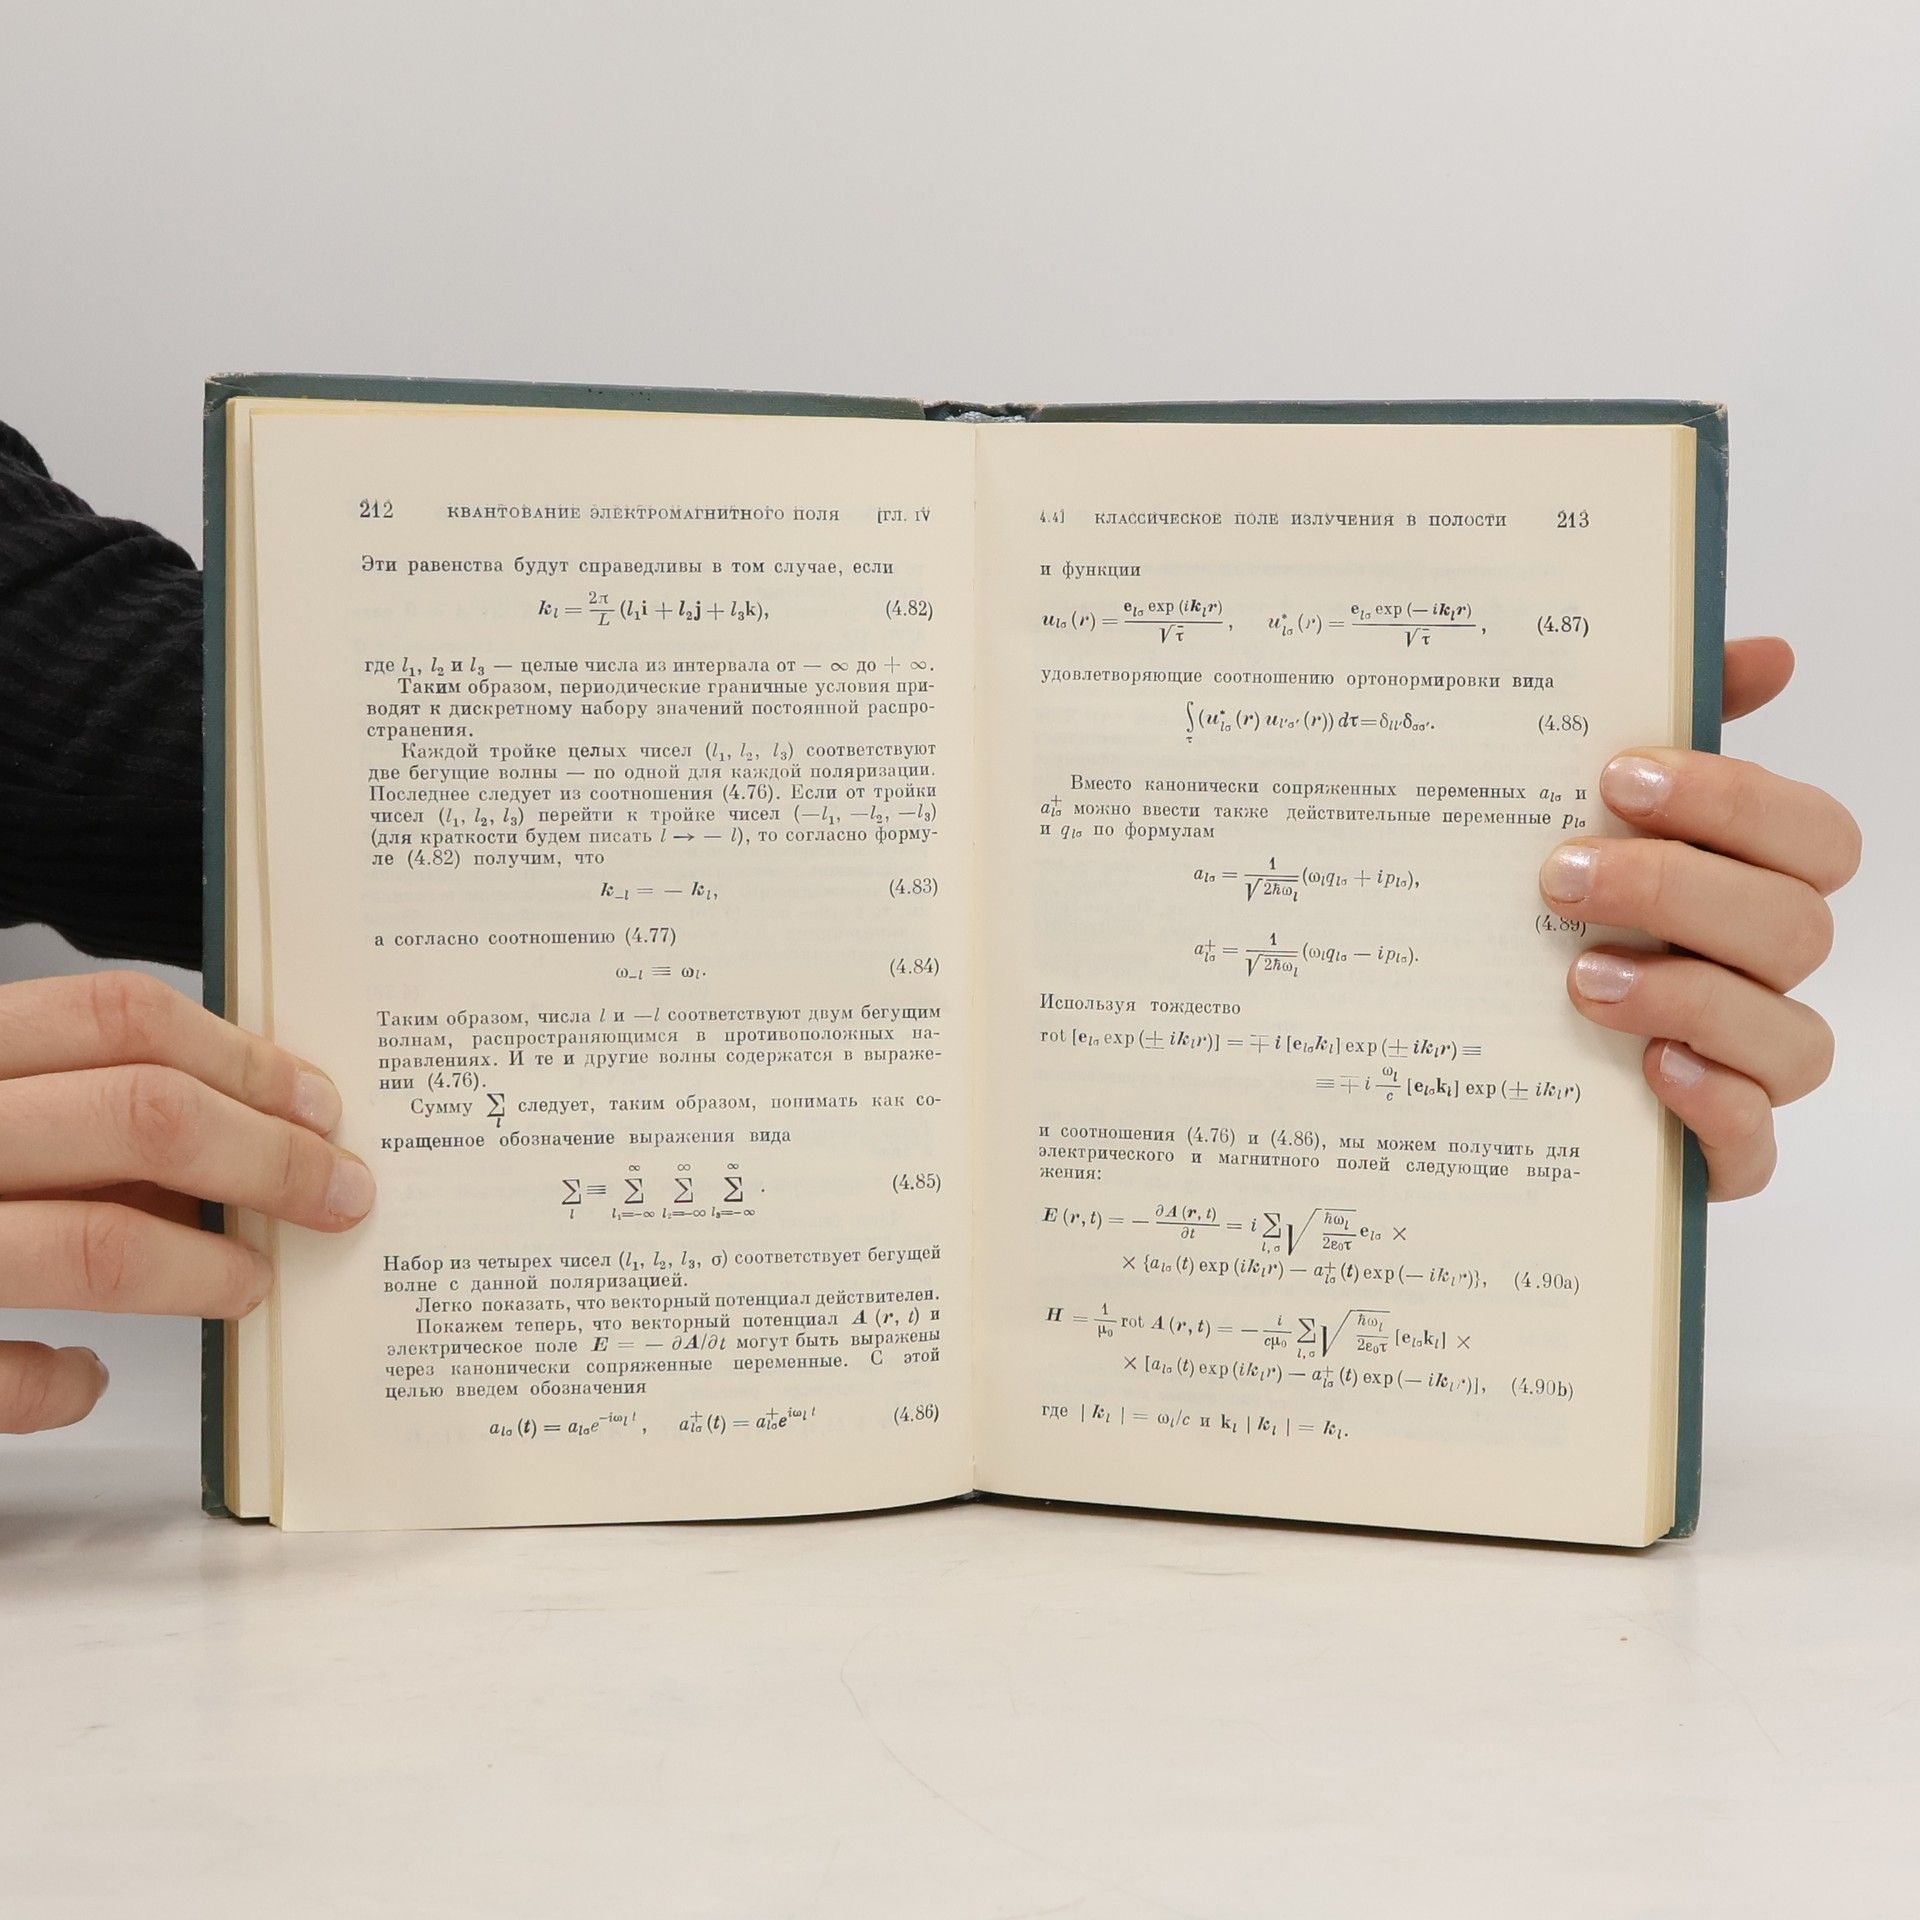 212 КВАНТОВАНИЕ ЭЛЕКТРОМАГНИТНОГО ПОЛЯ [ГЛ. IV
Эти равенства будут справедливы в том случае, если
k_l = 2π/L (l₁i + l₂j + l₃k), (4.82)
где l₁, l₂ и l₃ — целые числа из интервала от — ∞ до + ∞.
Таким образом, периодические граничные условия при-
водят к дискретному набору значений постоянной распро-
странения.
Каждой тройке целых чисел (l₁, l₂, l₃) соответствуют
две бегущие волны — по одной для каждой поляризации.
Последнее следует из соотношения (4.76). Если от тройки
чисел (l₁, l₂, l₃) перейти к тройке чисел (—l₁, —l₂, —l₃)
(для краткости будем писать l → — l), то согласно форму-
ле (4.82) получим, что
k_{–l} = — k_l, (4.83)
а согласно соотношению (4.77)
ω_{–l} ≡ ω_l. (4.84)
Таким образом, числа l и —l соответствуют двум бегущим
волнам, распространяющимся в противоположных на-
правлениях. И те и другие волны содержатся в выраже-
нии (4.76).
Сумму ∑_l следует, таким образом, понимать как со-
кращенное обозначение выражения вида
∑_l ≡ ∑_{l₁=—∞}^∞ ∑_{l₂=—∞}^∞ ∑_{l₃=—∞}^∞ . (4.85)
Набор из четырех чисел (l₁, l₂, l₃, σ) соответствует бегущей
волне с данной поляризацией.
Легко показать, что векторный потенциал действителен.
Покажем теперь, что векторный потенциал A (r, t) и
электрическое поле E = — ∂A/∂t могут быть выражены
через канонически сопряженные переменные. С этой
целью введем обозначения
a_{lσ} (t) = a_{lσ}e^{–iω_l t}, a⁺_{lσ} (t) = a⁺_{lσ}e^{iω_l t} (4.86)
4.4] КЛАССИЧЕСКОЕ ПОЛЕ ИЗЛУЧЕНИЯ В ПОЛОСТИ 213
и функции
u_{lσ} (r) = e_{lσ} exp (ik_l r)/√τ, u*_{lσ} (r) = e_{lσ} exp (— ik_l r)/√τ, (4.87)
удовлетворяющие соотношению ортонормировки вида
∫_τ (u*_{lσ} (r) u_{l'σ'} (r)) dτ = δ_{ll'}δ_{σσ'}. (4.88)
Вместо канонически сопряженных переменных a_{lσ} и
a⁺_{lσ} можно ввести также действительные переменные p_{lσ}
и q_{lσ} по формулам
a_{lσ} = 1/√(2ħω_l) (ω_l q_{lσ} + ip_{lσ}),
(4.89)
a⁺_{lσ} = 1/√(2ħω_l) (ω_l q_{lσ} — ip_{lσ}).
Используя тождество
rot [e_{lσ} exp (± ik_l r)] = ∓ i [e_{lσ}k_l] exp (± ik_l r) ≡
≡ ∓ i ω_l/c [e_{lσ}k_l] exp (± ik_l r)
и соотношения (4.76) и (4.86), мы можем получить для
электрического и магнитного полей следующие выра-
жения:
E (r, t) = — ∂A (r, t)/∂t = i ∑_{l, σ} √(ħω_l/2ε₀τ) e_{lσ} ×
× {a_{lσ} (t) exp (ik_l r) — a⁺_{lσ} (t) exp (— ik_l r)}, (4.90a)
H = 1/μ₀ rot A (r, t) = — i/cμ₀ ∑_{l, σ} √(ħω_l/2ε₀τ) [e_{lσ}k_l] ×
× [a_{lσ} (t) exp (ik_l r) — a⁺_{lσ} (t) exp (— ik_l r)], (4.90b)
где | k_l | = ω_l/c и k_l | k_l | = k_l.